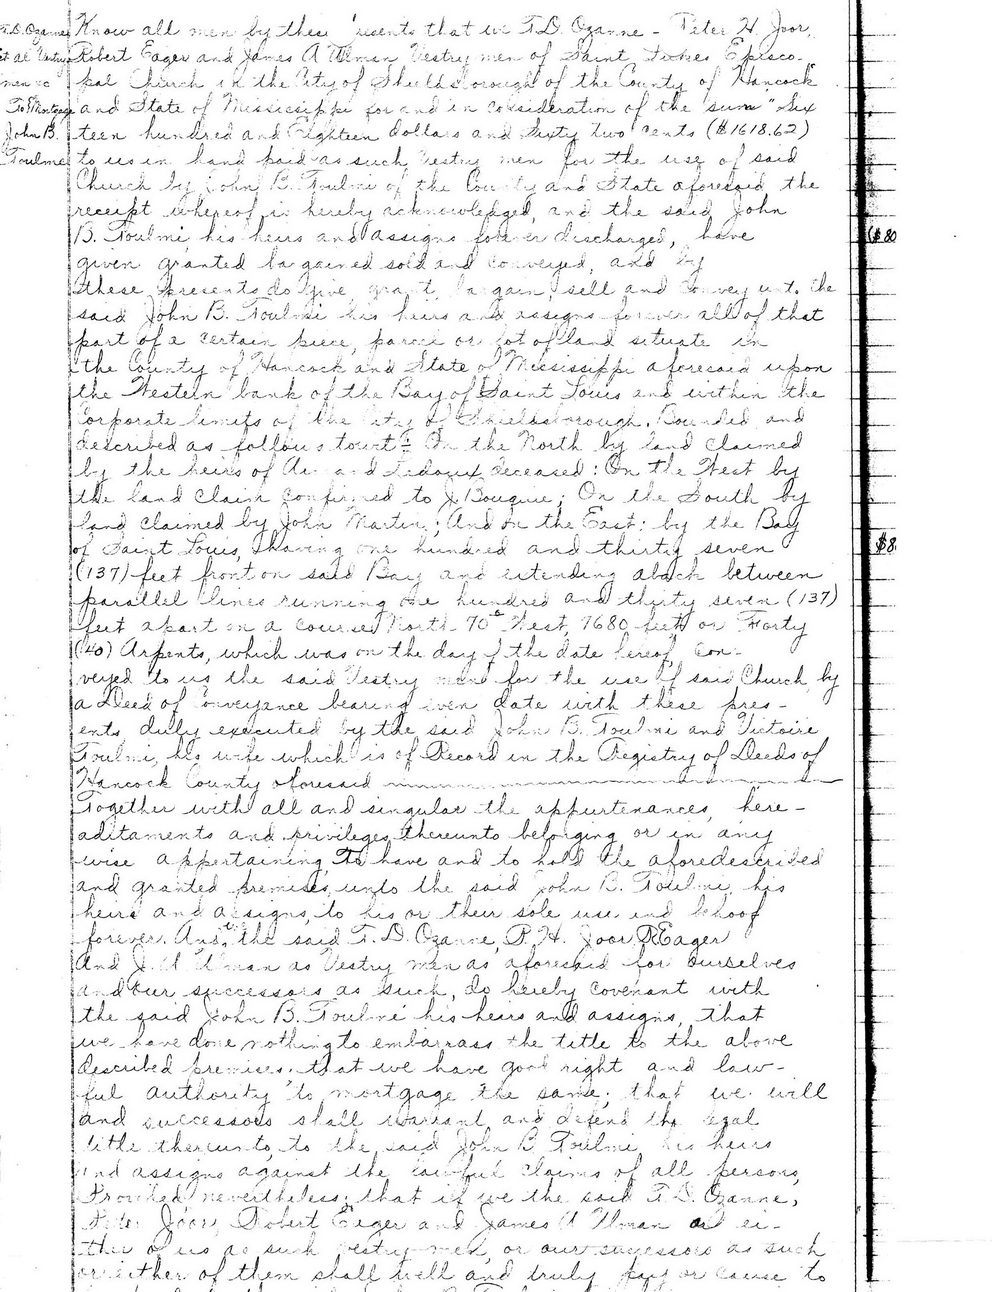 T.D. Ozanne
et al Vestry
men &c
To Mortgage
John B.
Toulme
Know all men by these presents that we T.D. Ozanne - Peter H. Joor,
Robert Eager and James A Ulman Vestry men of Saint Lukes Episco-
pal Church in the City of Shieldsborough of the County of Hancock
and State of Mississippi for and in consideration of the sum Six
teen hundred and Eighteen dollars and Sixty two cents ($1618.62)
to us in hand paid as such Vestry men for the use of said
Church by John B. Toulmi of the County and State aforesaid, the
receipt whereof is hereby acknowledged, and the said John
B. Toulmi, his heirs and assigns forever discharged, have
given granted bargained sold and conveyed, and by
these presents do give, grant, bargain, sell and convey unto the
said John B. Toulmi his heirs and assigns forever all of that
part of a certain piece, parcel or lot of land situate in
the County of Hancock and State of Mississippi aforesaid upon
the Western bank of the Bay of Saint Louis and within the
Corporate limits of the City of Shieldsborough. Bounded and
described as follows towit: On the North by land claimed
by the heirs of Armand Ledoux deceased: On the West by
the land claim confirmed to J. Bouquie; On the South by
land claimed by John Martin; And on the East; by the Bay
of Saint Louis, having one hundred and thirty seven
(137) feet front on said Bay and extending aback between
parallel lines running one hundred and thirty seven (137)
feet apart on a course North 70° West, 7680 feet or Forty
(40) Arpents, which was on the day of the date hereof, con-
veyed to us the said Vestry men for the use of said Church by
a Deed of Conveyance bearing even date with these pres-
ents duly executed by the said John B. Toulmi and Victoire
Toulmi, his wife which is of Record in the Registry of Deeds of
Hancock County aforesaid
Together with all and singular the appurtenances, here-
aditaments and privileges thereunto belonging or in any
wise appertaining, To have and to hold the aforedescribed
and granted premises, unto the said John B. Toulmi, his
heirs and assigns, to his or their sole use and behoof
forever. And, we the said T. D. Ozanne, P. H. Joor R Eager
And J. A Ulman as Vestry men as aforesaid for ourselves
and our successors as such, do hereby covenant with
the said John B. Toulmi his heirs and assigns, that
we have done nothing to embarrass the title to the above
described premises. that we have good right and law-
ful authority to mortgage the same; that we will
and successors shall warrant and defend the legal
title thereunto, to the said John B Toulmi his heirs
and assigns against the lawful claims of all persons,
Provided nevertheless; that if we the said T. D. Ozanne,
Peter Joor, Robert Eager and James A Ulman or ei-
ther of us as such vestry-men, or our successors as such
or either of them shall well and truly pay or cause to
($80
$8